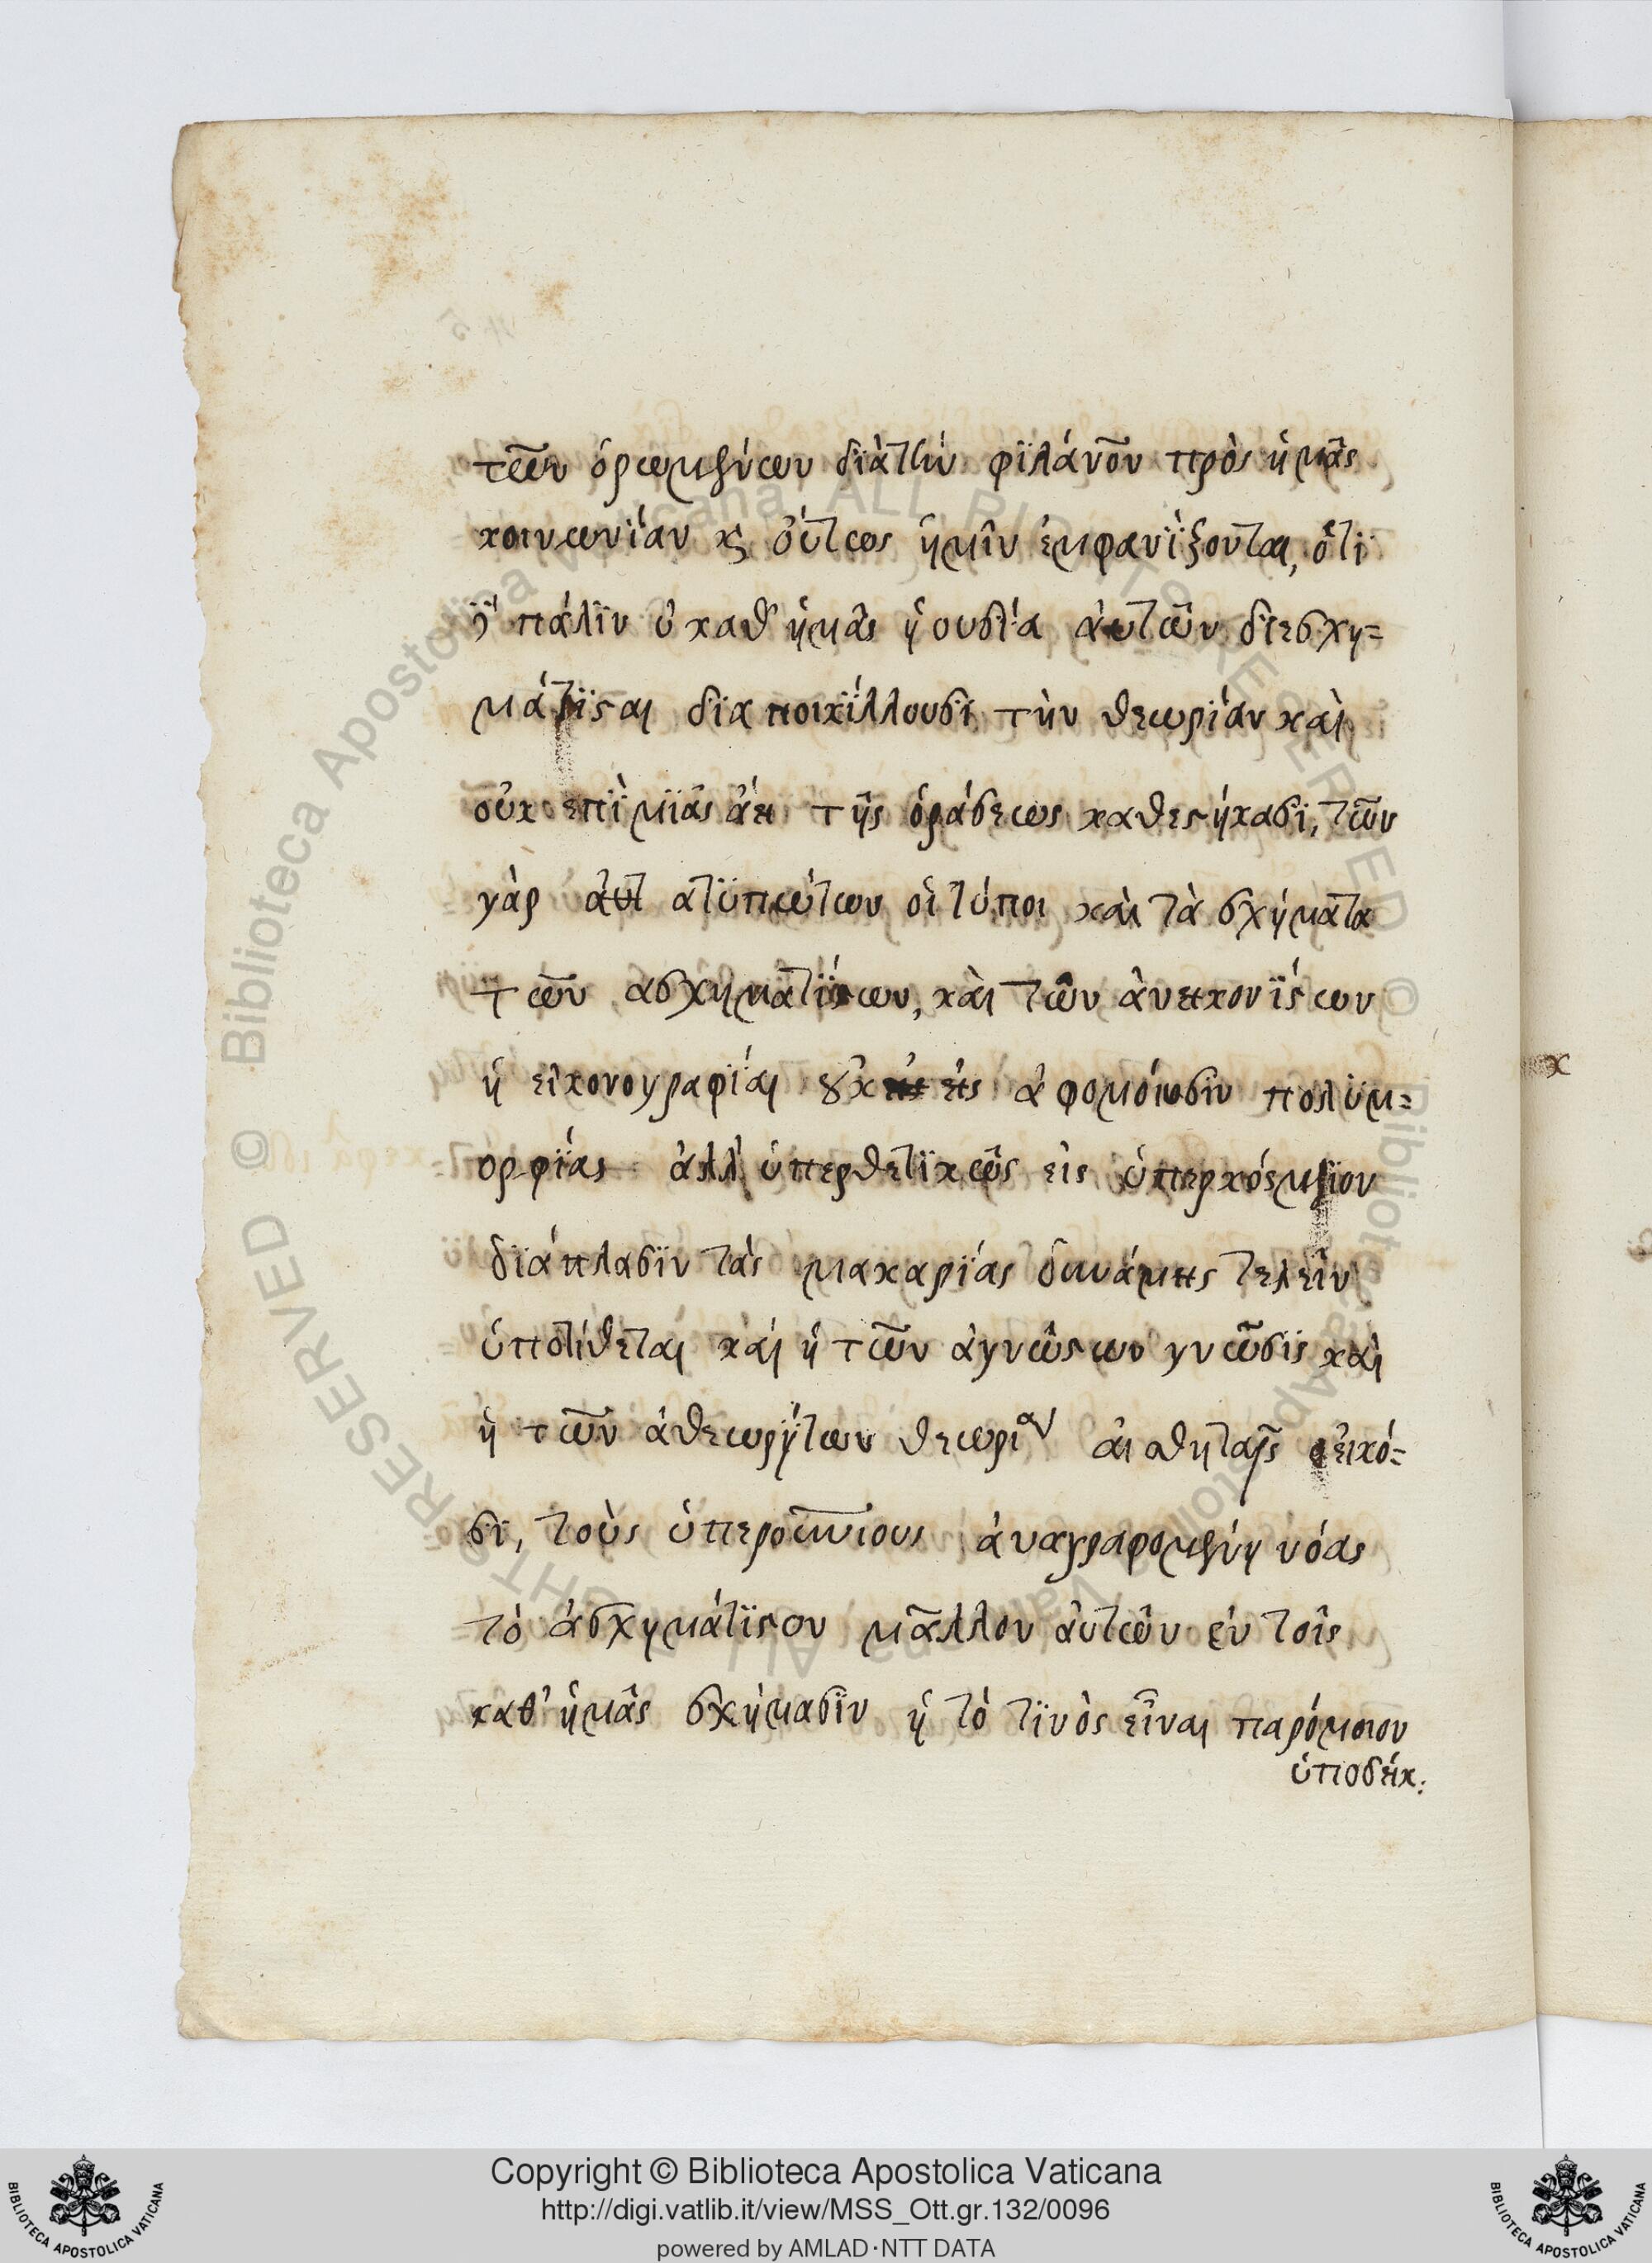 τῶν ὁρωμένων διὰ τὴν φϊλάνο̅ν πρὸς ἡμᾶς
κοινωνΐαν κ οὕτως ἡμῖν ἐμφανΐζονται, ὅτϊ
πάλϊν ὑ καθ' ἡμᾶς ἡ ουσία αὐτῶν διεσχη=
μάτϊσαι διαποικΐλλουσι τὴν θεωρΐαν καὶ
οὐκ επῒ μϊᾶς ἀεὶ τῆς ὁράσεως καθεστήκασι, τῶν
γὰρ ατϋπώτων οἱ τύποι καὶ τὰ σχήματα
τῶν ασχηματΐστων, καὶ τῶν ἀνεικονΐστων
ἡ εἰκονογραφΐαι οὐκ εἰς ἀφομόιωσϊν πολϋμ=
ορφΐας ἀλλ' ὑπερθετϊκῶς εἰς ὑπερκόσμϊον
δϊάπλασϊν τὰς μακαρΐας δυνάμεις τελεῖν
ὑποτίθεται καί ἡ τῶν ἀγνώστων γνῶσϊς καὶ
ἡ τῶν ἀθεωρήτων θεωριαν αἰσθηταῖς εἰκό=
σϊ, τοὺς ὑπερουνίους ἀναγραφομένη νόας
τὸ ἀσχημάτϊστον μᾶλλον ἀυτῶν ἐν τοῖς
καθ' ἡμᾶς σχήμασϊν ἡ τὸ τϊνὸς εἶναι παρόμοιον
ὑποδείκ:
Copyright © Biblioteca Apostolica Vaticana
http://digi.vatlib.it/view/MSS_Ott.gr.132/0096
powered by AMLAD·NTT DATA
BIBLIOTECA APOSTOLICA VATICANA
BIBLIOTECA APOSTOLICA VATICANA